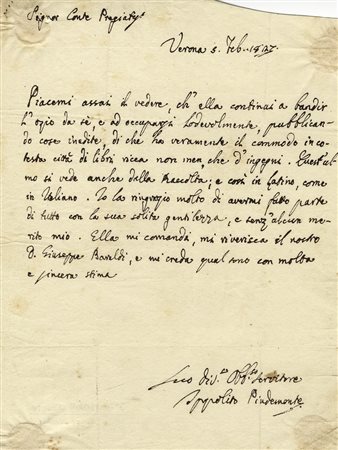 Signor Conte Pregiatis.o
Verona 5. Feb.
Piacemi assai il vedere, ch'ella continui a bandir
l'ozio da sè, e ad occuparsi lodevolmente, pubblican-
do cose inedite, di che ha veramente il commodo in co-
testa città di libri ricca non men, che d'ingegni. Quest'ul-
mo si vede anche dalla Raccolta, e così in Latino, come
in Italiano. Io la ringrazio molto di avermi fatto parte
di tutto con la sua solita gentilezza, e senz'alcun me-
rito mio. Ella mi comandi, mi riverisca il nostro
D. Giuseppe Baraldi, e mi creda qual sono con molta
e sincera stima
Suo div.o Obb.o Servitore
Ippolito Pindemonte